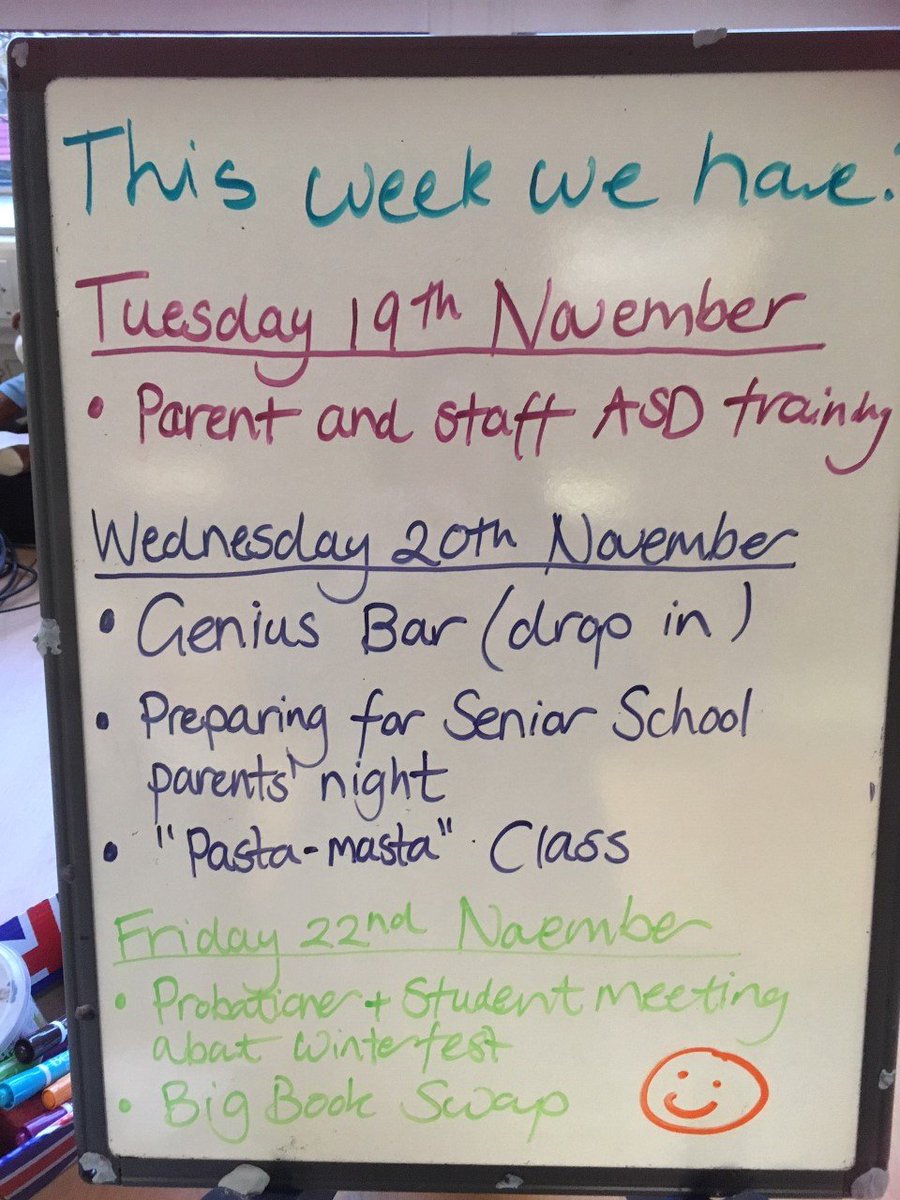 This week we have:
Tuesday 19th November
• Parent and staff ASD training
Wednesday 20th November
• Genius Bar (drop in)
• Preparing for Senior School
parents' night
• "Pasta-masta" Class
Friday 22nd November
• Probationer + Student meeting
about Winterfest
• Big Book Swap